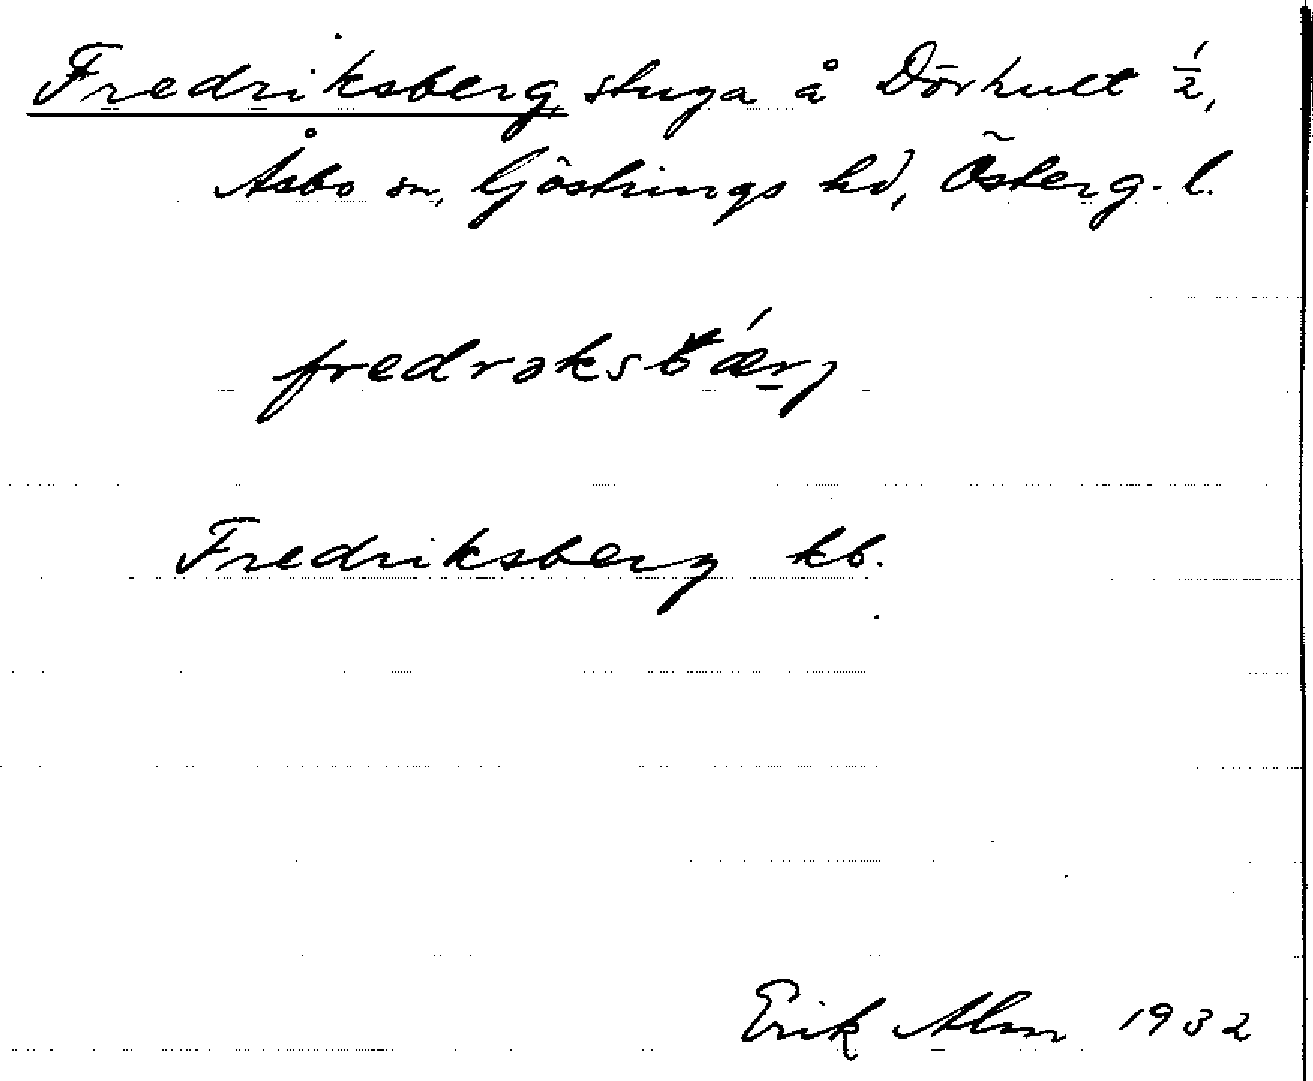 Fredriksberg, stuga å Dörhult ½,
Åsbo sn, Göstrings hd, Österg. l.
fredrəksbǽrj
Fredriksberg kb.
Erik Alm 1932